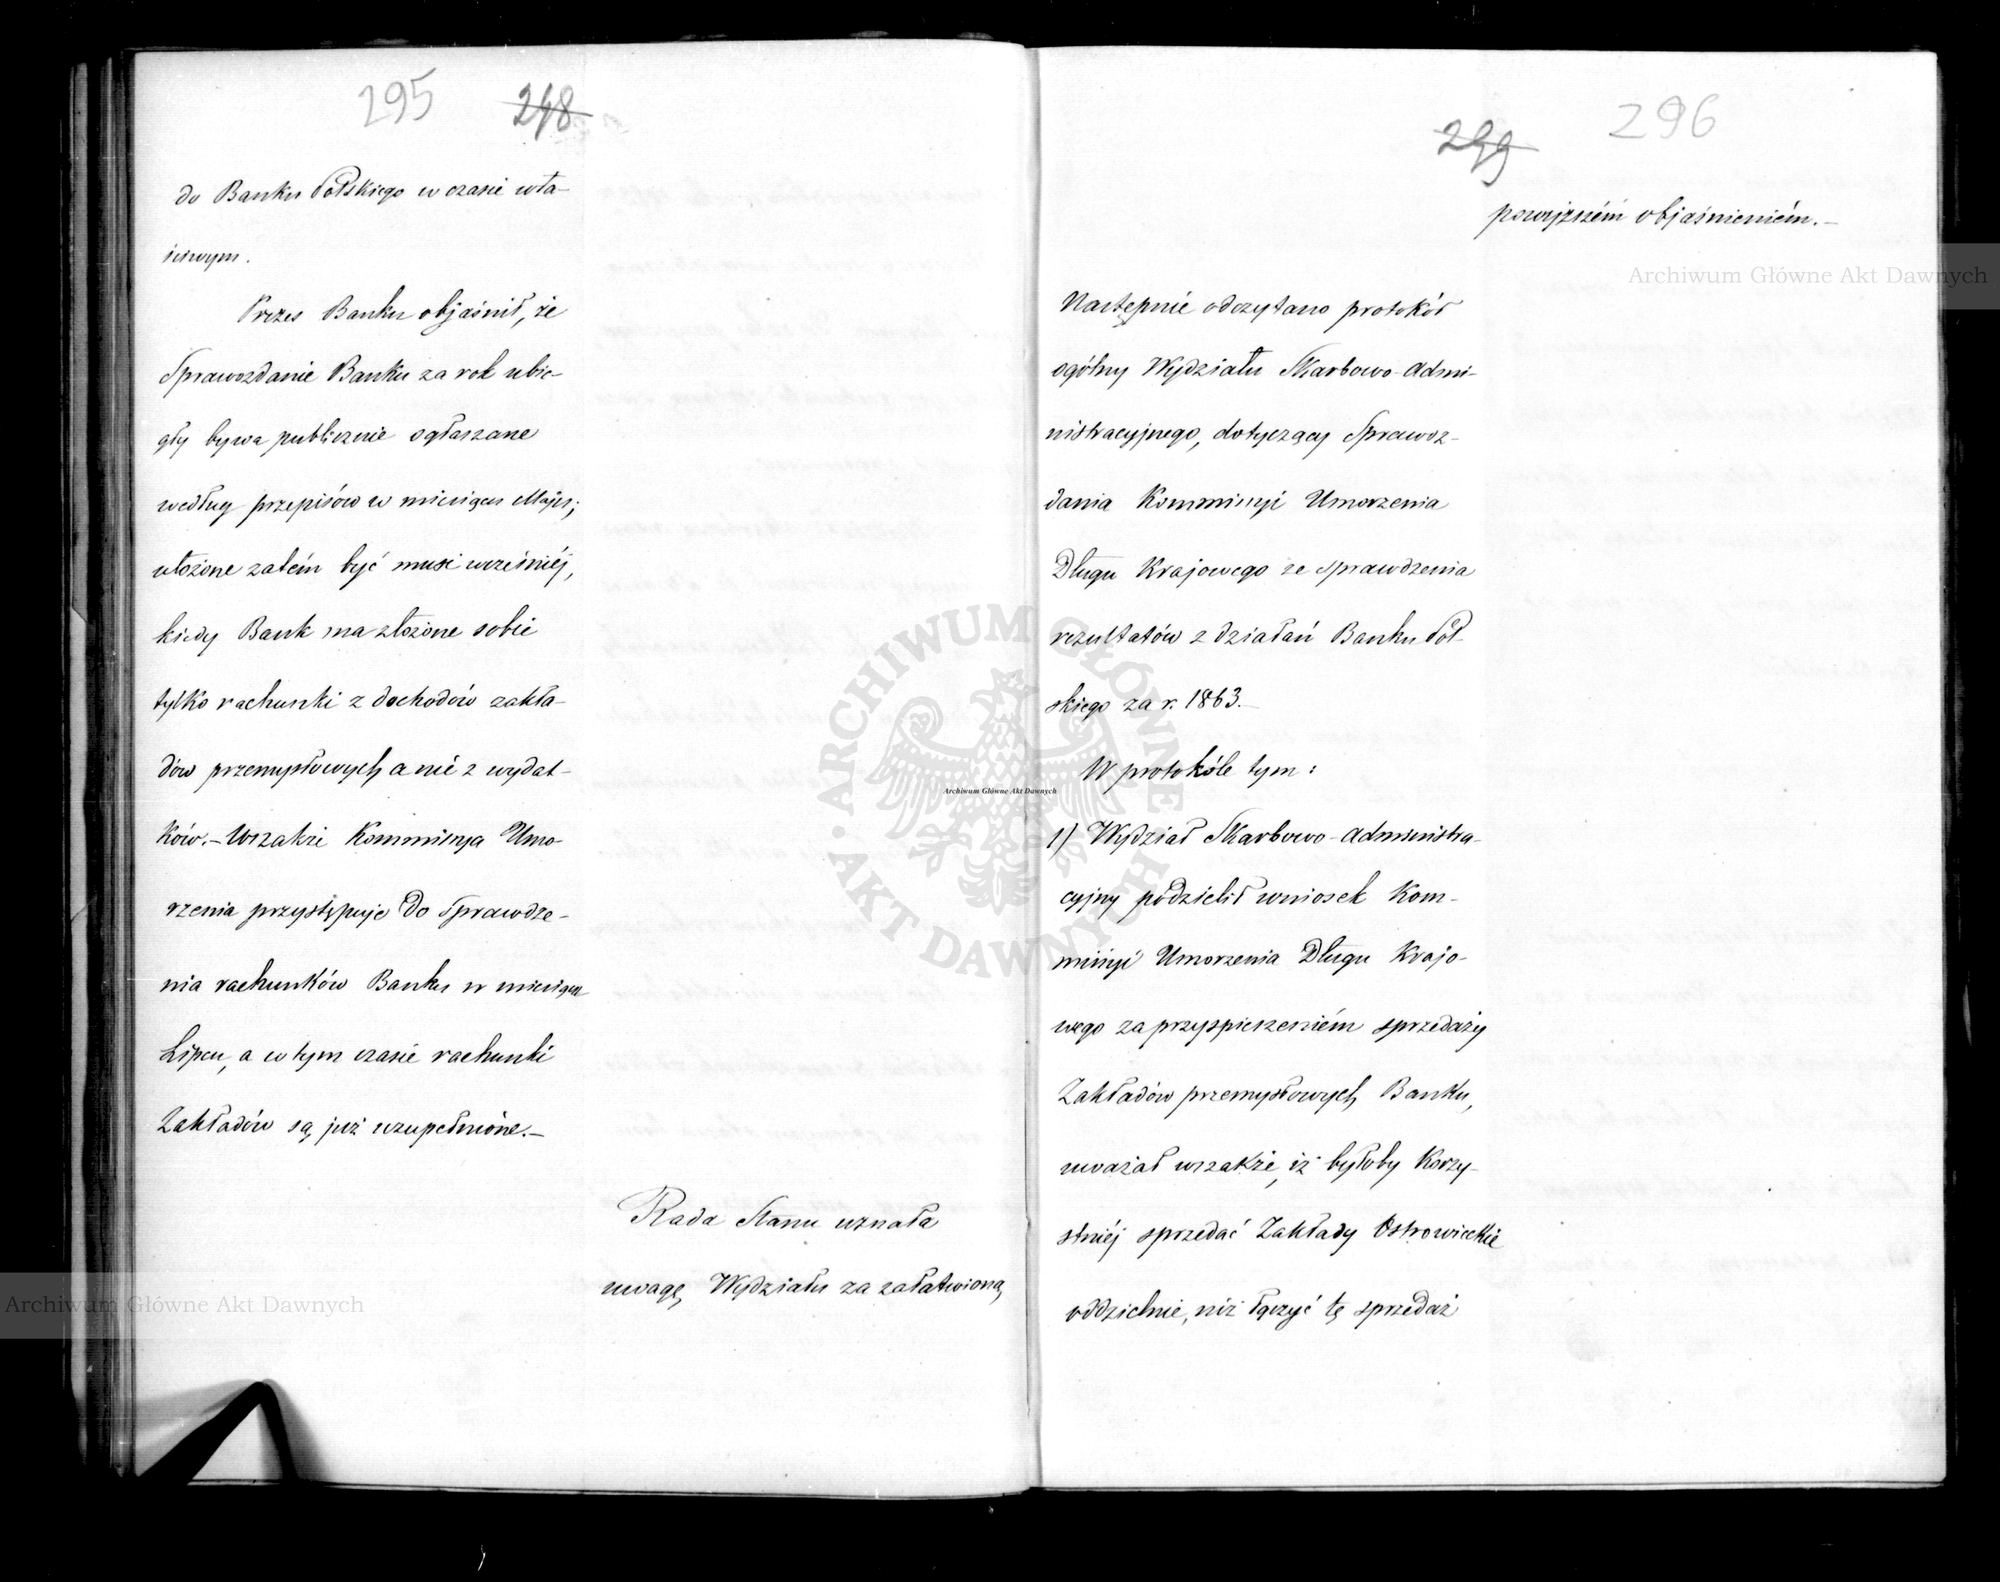 295 298
do Banku Polskiego w czasie wła-
ściwym.
Prezes Banku objaśnił, że
Sprawozdanie Banku za rok ubie-
gły bywa publicznie ogłaszane
według przepisów w miesiącu Maju;
ułożone zatém być musi wcześniéj,
kiedy Bank ma złożone sobie
tylko rachunki z dochodów zakła-
dów przemysłowych, a nie z wydat-
ków. – Wszakże Kommissya Umo-
rzenia przystępuje do sprawdze-
nia rachunków Banku w miesiącu
Lipcu, a w tym czasie rachunki
Zakładów są już uzupełnione. –
Rada Stanu uznała
uwagę Wydziału za załatwioną
299 296
powyższém objaśnieniém. –
Następnie odczytano protokół
ogólny Wydziału Skarbowo-Admi-
nistracyjnego, dotyczący Sprawoz-
dania Kommissyi Umorzenia
Długu Krajowego ze sprawdzenia
rezultatów z działań Banku Pol-
skiego za r. 1863. –
W protokóle tym:
1) Wydział Skarbowo-Administra-
cyjny podzielił wniosek Kom-
missyi Umorzenia Długu Krajo-
wego za przyspieszeniém sprzedaży
Zakładów przemysłowych Banku,
uważał wszakże, iż byłoby korzy-
stniéj sprzedać Zakłady Ostrowieckie
oddzielnie, niż łączyć tę sprzedaż
Archiwum Główne Akt Dawnych
Archiwum Główne Akt Dawnych
Archiwum Główne Akt Dawnych
ARCHIWUM GŁÓWNE AKT DAWNYCH